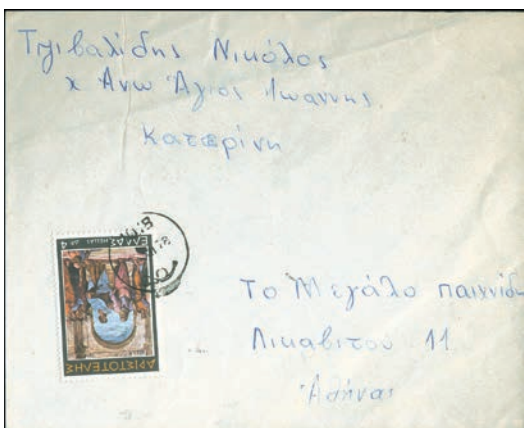 Νικόλας
χ Άνω Άγιος Ιωαννης.
Κατερίνη
ΕΛΛΑΣ HELLAS ΔΡ 4
ΑΡΙΣΤΟΤΕΛΗΣ
Το Μεγάλο παιχνίδι
Λικαβιτου 11
Αθήναι